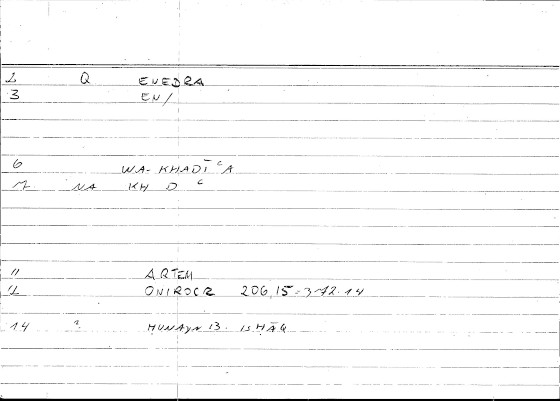 2 Q ENEDRA
3 EN/
6 WA-KHADĪʿA
7 NA KH D ʿ
11 ARTEM
12 ONIROCR 206,15-3-72.14
14 ḤUNAYN B. ISḤĀQ